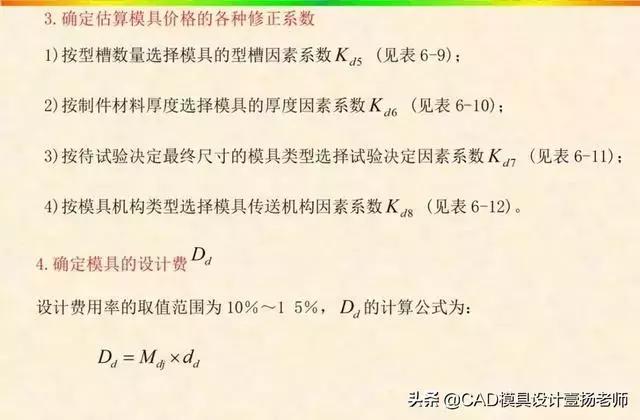 3.确定估算模具价格的各种修正系数
1)按型槽数量选择模具的型槽因素系数 K_{d5} (见表 6-9)；
2)按制件材料厚度选择模具的厚度因素系数 K_{d6} (见表 6-10)；
3)按待试验决定最终尺寸的模具类型选择试验决定因素系数 K_{d7} (见表 6-11)；
4)按模具机构类型选择模具传送机构因素系数 K_{d8} (见表 6-12)。
4.确定模具的设计费 D_d
设计费用率的取值范围为 10%～1 5%，D_d 的计算公式为：
D_d = M_{dj} × d_d
头条 @CAD模具设计壹扬老师